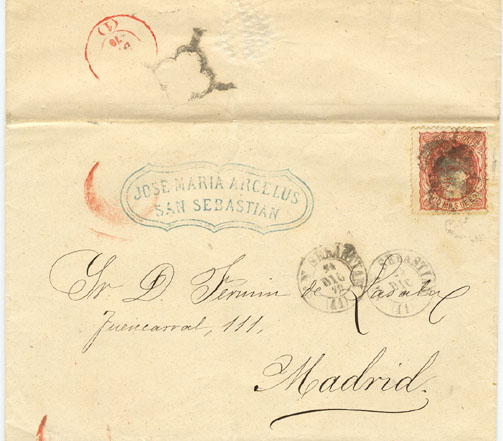 (1)
70
JOSE MARIA ARCELUS
SAN SEBASTIAN
S. SEBASTIAN
24
DIC
70
(41)
SEBASTIAN
DIC
Sr D. Fermin de Lasala
Fuencarral, 111.
Madrid.